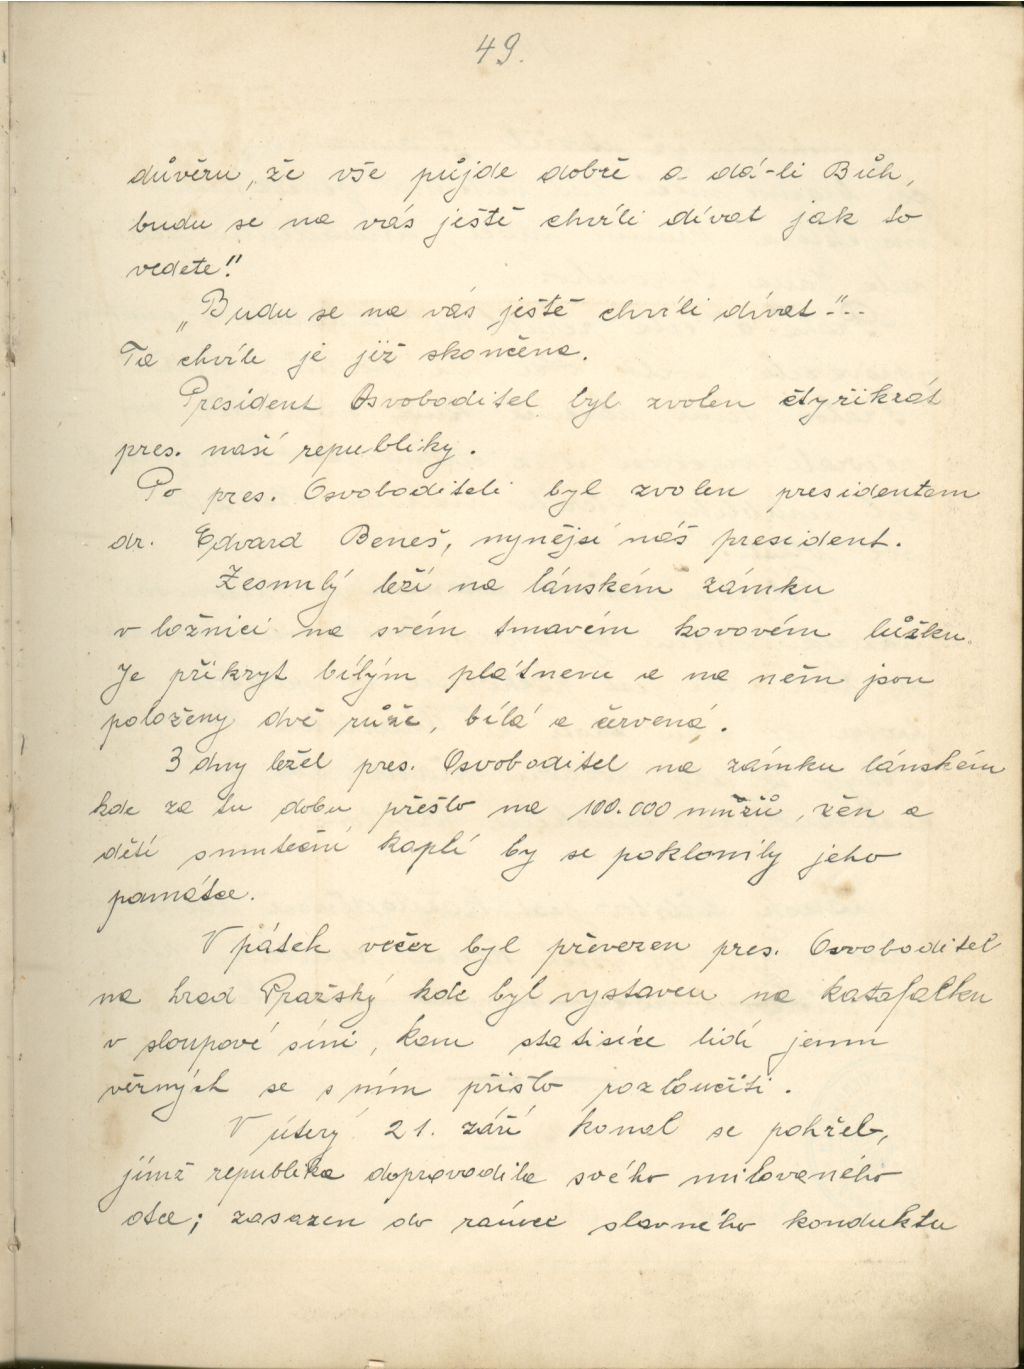 49.
důvěru, že vše půjde dobře a dá-li Bůh,
budu se na vás ještě chvíli dívat jak to
vedete!"
„Budu se na vás ještě chvíli dívat"...
Ta chvíle je již skončena.
President Osvoboditel byl zvolen čtyřikrát
pres. naší republiky.
Po pres. Osvoboditeli byl zvolen presidentem
dr. Edvard Beneš, nynější náš president.
Zesnulý leží na lánském zámku
v ložnici na svém tmavém kovovém lůžku.
Je přikryt bílým plátnem a na něm jsou
položeny dvě růže, bílá a červená.
3 dny ležel pres. Osvoboditel na zámku lánském
kde za tu dobu přešlo na 100.000 mužů, žen a
dětí smuteční kaplí by se poklonily jeho
památce.
V pátek večer byl převezen pres. Osvoboditel
na hrad Pražský kde byl vystaven na katafalku
v sloupové síni, kam statisíce lidí jemu
věrných se s ním přišlo rozloučiti.
V úterý 21. září konal se pohřeb,
jímž republika doprovodila svého milovaného
otce; zasazen do rámce slavného konduktu